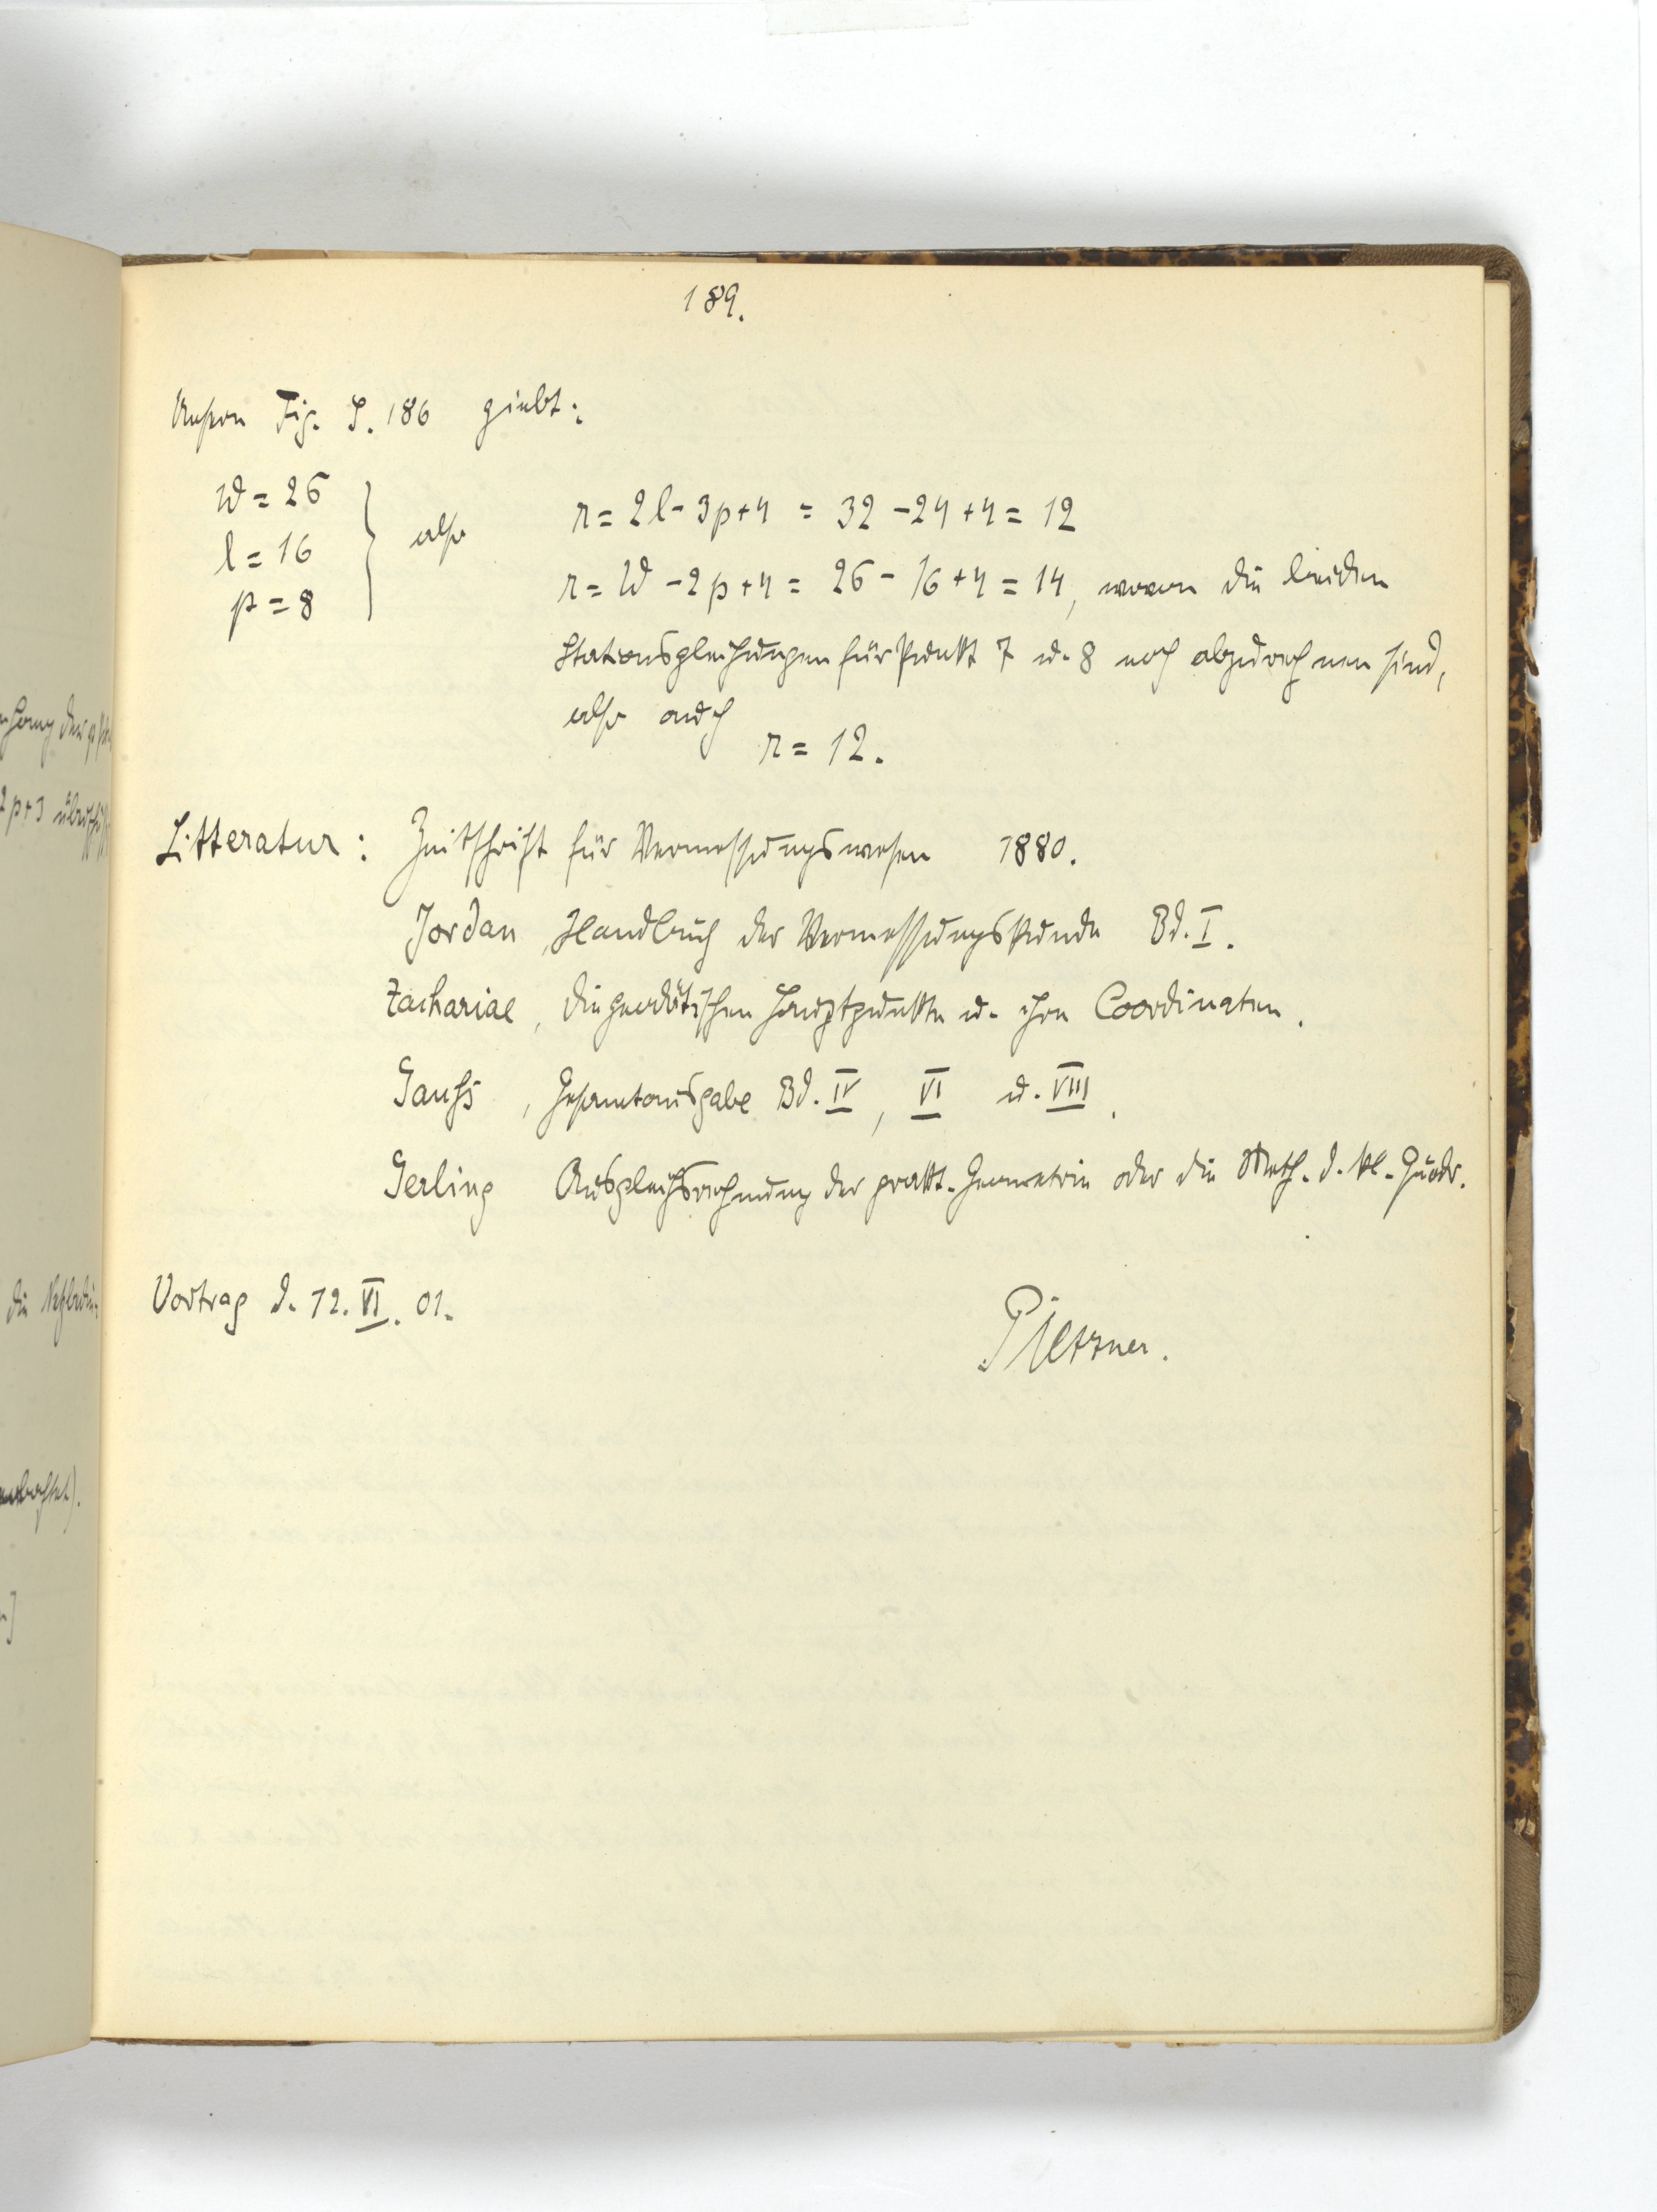 189.
Unsere Fig. S. 186 giebt:
W = 26
l = 16
p = 8
also
r = 2l - 3p + 4 = 32 - 24 + 4 = 12
r = W - 2p + 4 = 26 - 16 + 4 = 14, wovon die beiden
Stationsgleichungen für Punkt 7 u. 8 noch abzurechnen sind,
also auch
r = 12.
Litteratur: Zeitschrift für Vermessungswesen 1880.
Jordan, Handbuch der Vermessungskunde Bd. I.
Zachariae, die geodätischen Hauptpunkte u. ihre Coordinaten.
Gauß, Gesamtausgabe Bd. IV, VI u. VIII.
Gerling Ausgleichsrechnung der prakt. Geometrie oder die Meth. d. kl. Quadr.
Vortrag d. 12. VI. 01.
2p+3
die